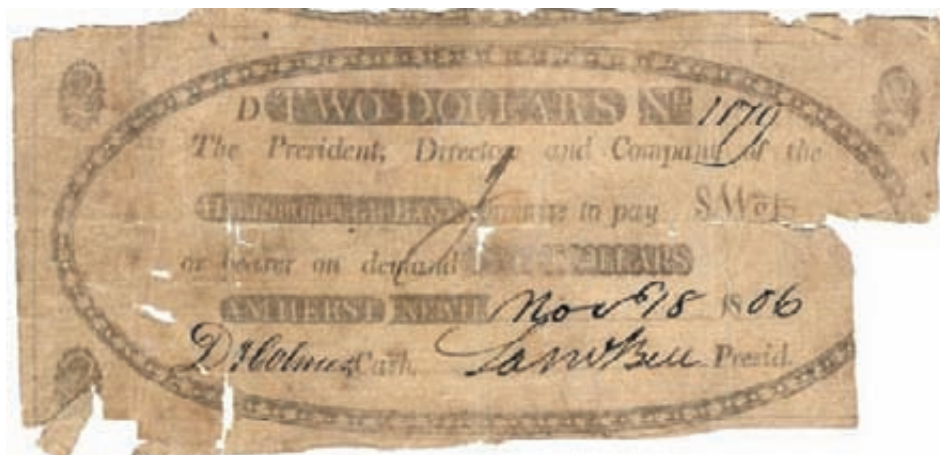 D TWO DOLLARS No 1179
The President, Directors and Company of the
HILLSBOROUGH BANK promise to pay
or bearer on demand TWO DOLLARS
AMHERST NEWH Nov 18 1806
D Holmes Cash. Sam Bell Presid.